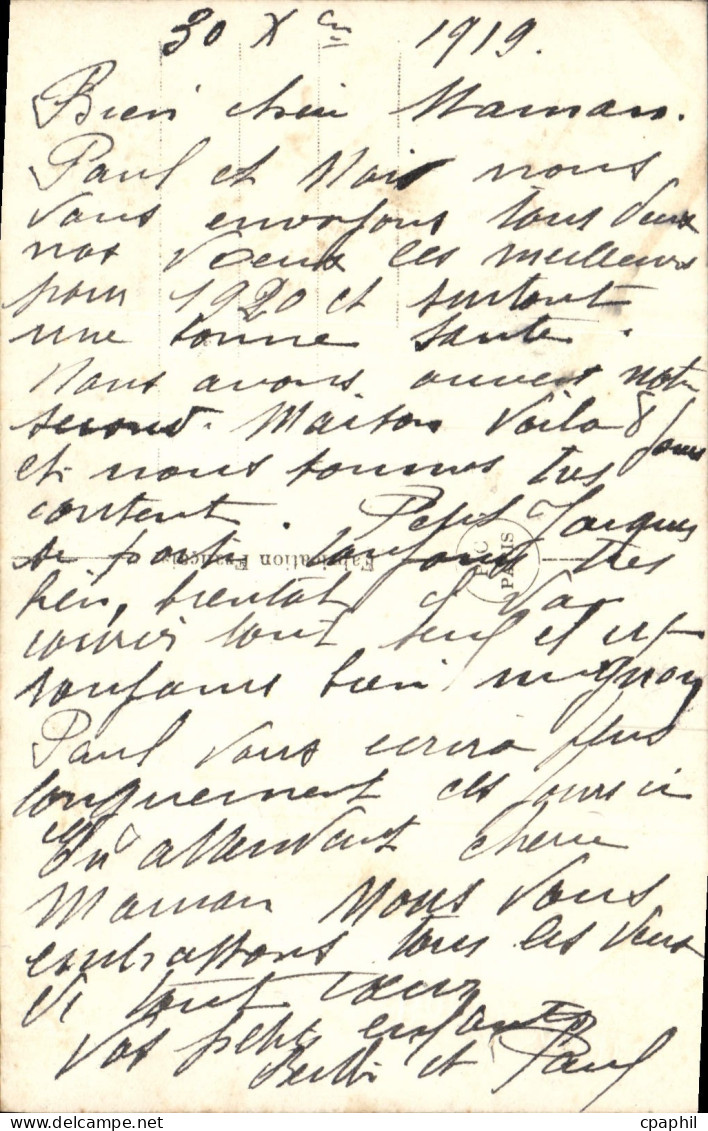 30 Xbre 1919.
Bien chère Maman.
Paul et Moi nous
vous envoyons tous deux
nos vœux les meilleurs
pour 1920 et surtout
une bonne santé.
Nous avons ouvert notre
seconde Maison voilà 8 jours
et nous sommes très
content. Petit Jacques
se porte toujours très
bien, bientôt il va
courir tout seul il est
toujours bien mignon
Paul vous écrira plus
longuement ces jours ci
En attendant chère
Maman Nous vous
embrassons tous les deux
de tout cœur
Vos petits enfants
et Paul
Fabrication Française
P.C
PARIS
www.cpaphil.com